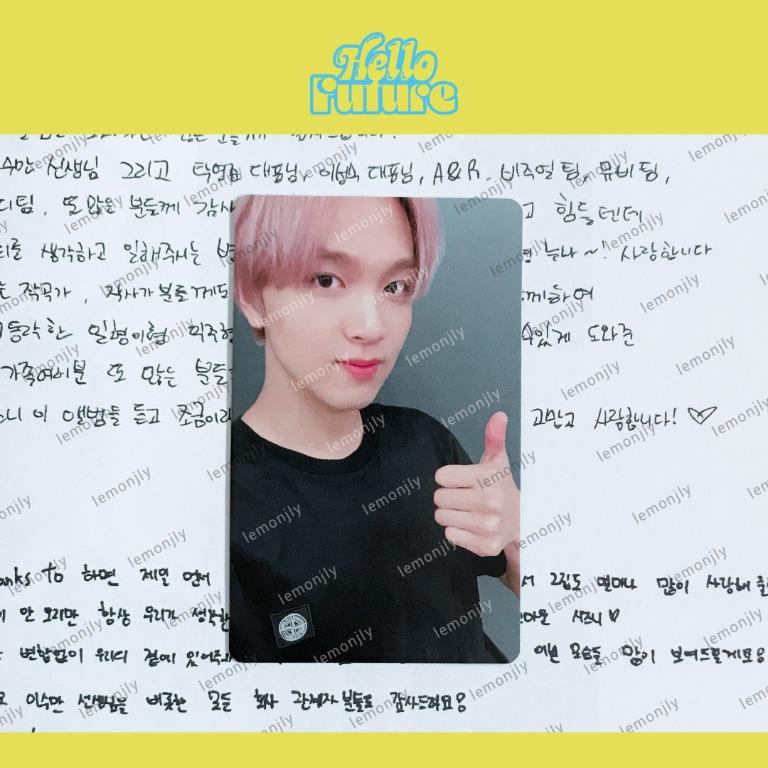 Hello
Future
수만 선생님 그리고 탁영준 대표님, 이성수 대표님, A&R, 비주얼팀, 뮤비팀,
디팀, 또 많은 분들께 감사 고 힘들텐데
생각하고 일해주시는 누나~! 사랑합니다
작곡가, 작사가분들께도 께하여
동락한 일형이형 수있게 도와준
가족여러분 또 많은 분들
이 앨범을 듣고 조금이라 고맙고 사랑합니다! ♡
anks to 하면 제일 먼저 서 2집도 면머나 많이 사랑해
안 오지만 항상 우리가 생각할 시즈니 ♡
변함없이 우리의 곁에 있어주 이번 모습들 많이 보여드릴게요
이수만 선생님을 비롯한 모든 회사 관계자분들도 감사드려요
lemonjly